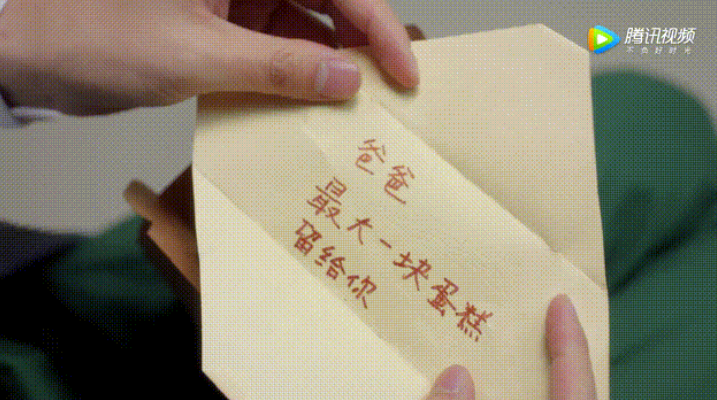 腾讯视频
不负好时光
爸爸
最大一块蛋糕
留给你